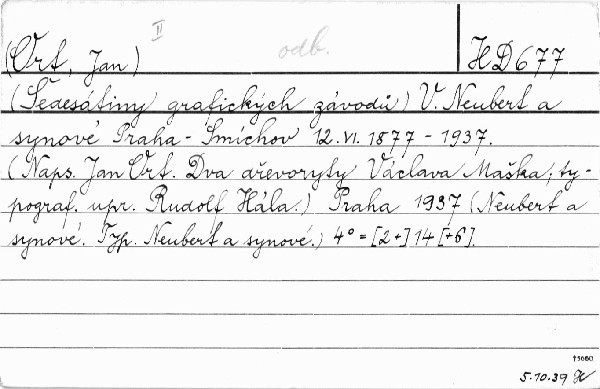 II
odb.
(Ort, Jan) HD677
(Šedesátiny grafických závodů) V. Neubert a
synové Praha - Smíchov 12. VI. 1877 - 1937.
(Naps. Jan Ort. Dva dřevoryty Václava Maška; ty-
pograf. upr. Rudolf Hála.) Praha 1937 (Neubert a
synové. Typ. Neubert a synové.) 4° = [2+] 14 [+6].
5.10.39